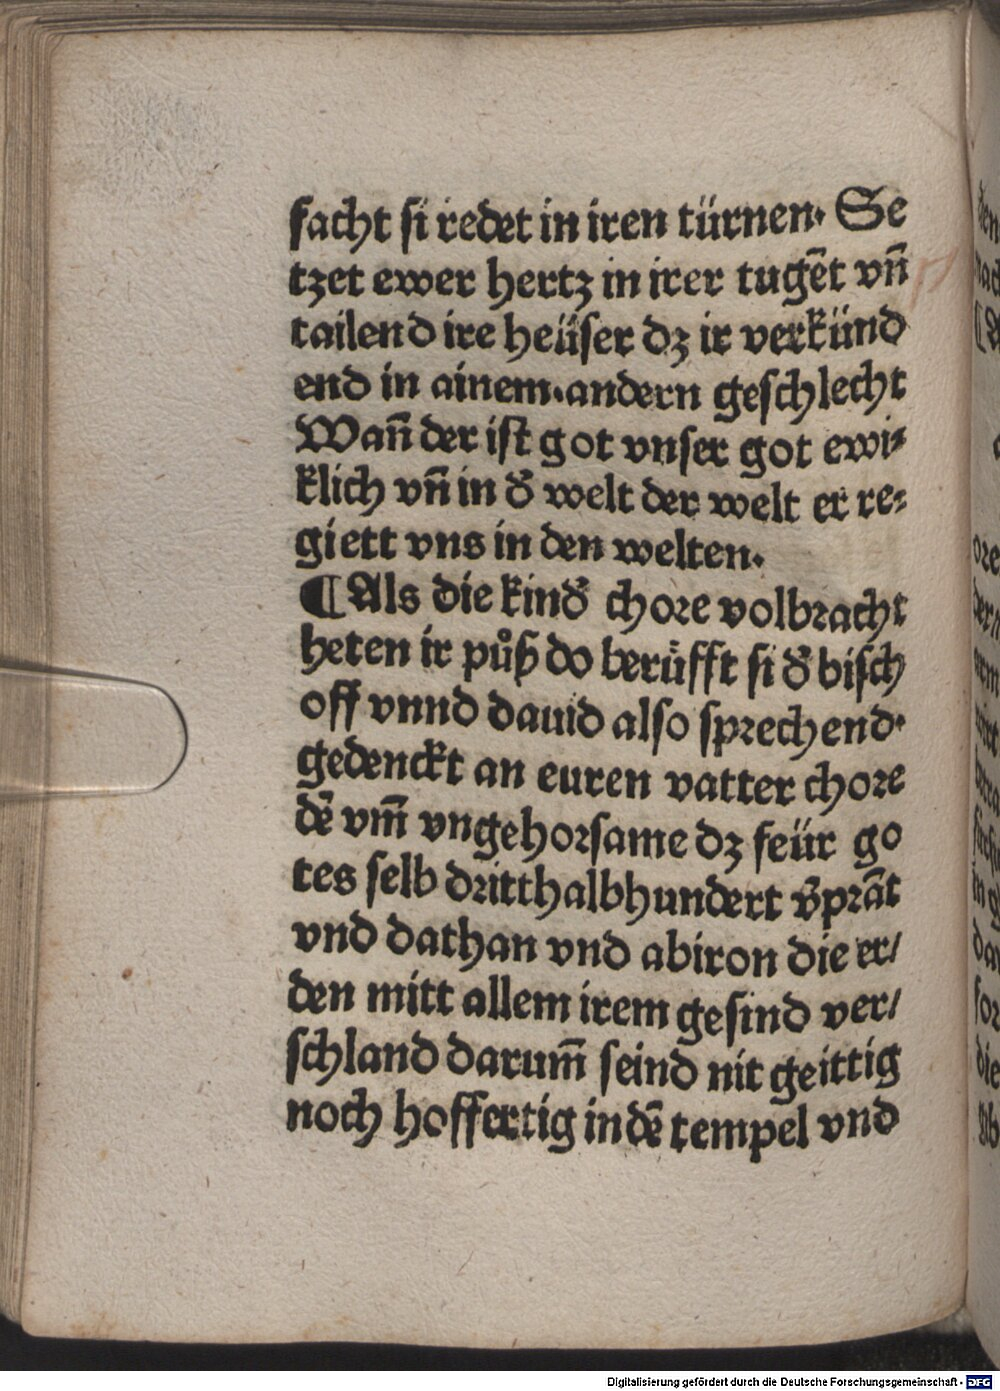 facht si redet in iren türnen· Se
tzet ewer hertz in irer tugēt vn̄
tailend ire heüser dz ir verkünd
end in ainem·andern geschlecht
Wan̄ der ist got vnser got ewi⸗
klich vn̄ in d̄ welt der welt er re⸗
giett vns in den welten·
¶Als die kind̄ chore volbracht
heten ir půß do berüfft si d̄ bisch
off vnnd dauid also sprechend·
gedenckt an euren vatter chore
dē vm̄ vngehorsame dz feür go
tes selb dritthalbhundert v̄prāt
vnd dathan vnd abiron die er/
den mitt allem irem gesind ver/
schland darum̄ seind nit geittig
noch hoffertig in dē tempel vnd
Digitalisierung gefördert durch die Deutsche Forschungsgemeinschaft - DFG